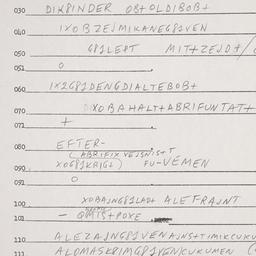 030 DIKPINDER OB+OLDIBOB+
040 IXOBZEJMIKANEG81VEN
050 G81LEDT MITZEJD+/
051 O
060 IX2G81DENGDIALTEBOB+
070 XOBAHALT+ABRIFUNTAT+
071 +
080 EFTER-
(ABRIFIX VEJSNIS+T
090 XOG81KRIG+) FU-VEMEN
091 O
100 XOBAJNG81LAD+ ALEFRAJNT
101 - +POXE
110 ALEZAJNG81VENAJNS+TIMIKCUKU
111 ALDMASKRIMG81VENKUKUMEN (